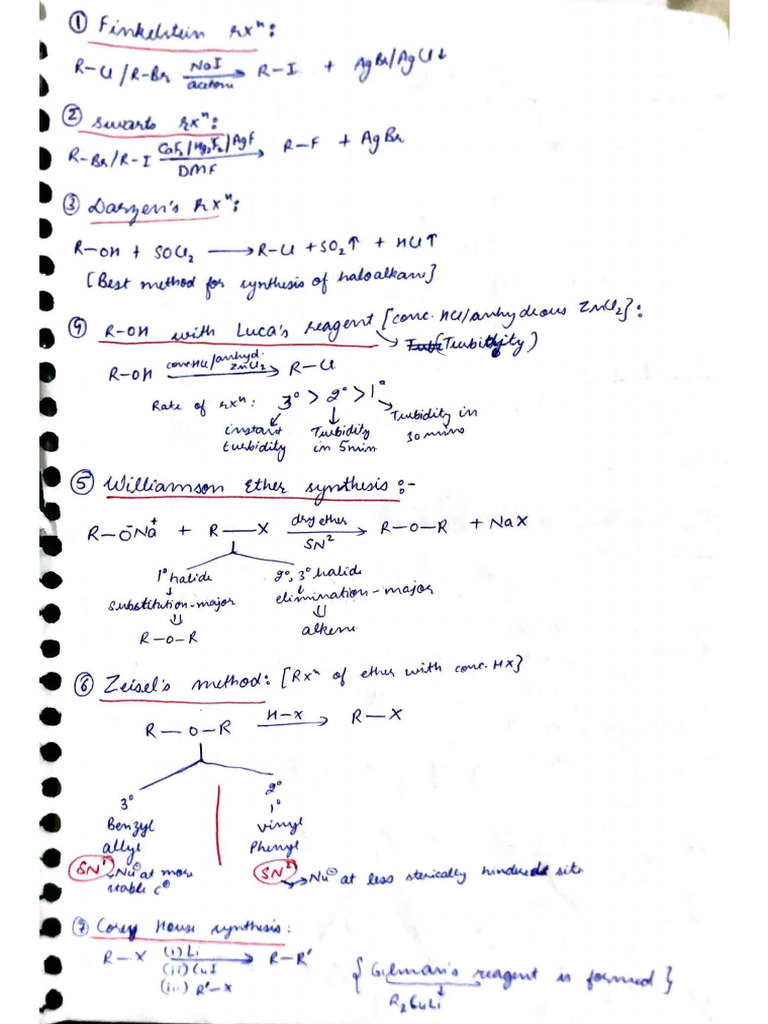 ① Finkelstein rxⁿ:
R–Cl/R–Br NaI acetone → R–I + AgBr/AgCl↓
② Swarts rxⁿ:
R–Br/R–I CoF₂/Hg₂F₂/AgF DMF → R–F + AgBr
③ Darzen's Rxⁿ:
R–OH + SOCl₂ → R–Cl + SO₂↑ + HCl↑
[Best method for synthesis of haloalkan]
④ R–OH with Luca's reagent [conc. HCl/anhydrous ZnCl₂]:
→ (Turbidity)
R–OH conc HCl/anhyd. ZnCl₂ → R–Cl
Rate of rxⁿ: 3° > 2° > 1°
instant turbidity
Turbidity in 5min
Turbidity in 30 mins
⑤ Williamson Ether synthesis:-
R–O⁻Na⁺ + R–X dry ether SN² → R–O–R + NaX
1° halide
↓
substitution-major
⇓
R–O–R
2°, 3° halide
↓
elimination-major
⇓
alkene
⑥ Zeisel's method: [Rxⁿ of ether with conc. HX]
R–O–R H–X → R–X
3°
Benzyl
allyl
SN¹ → Nu⊖ at more
stable C⊕
2°
1°
vinyl
Phenyl
SN² → Nu⊖ at less sterically hindered site
⑦ Corey House synthesis:
R–X (i) Li (ii) CuI (iii) R'–X → R–R'
{Gilman's reagent is formed}
↓
R₂CuLi